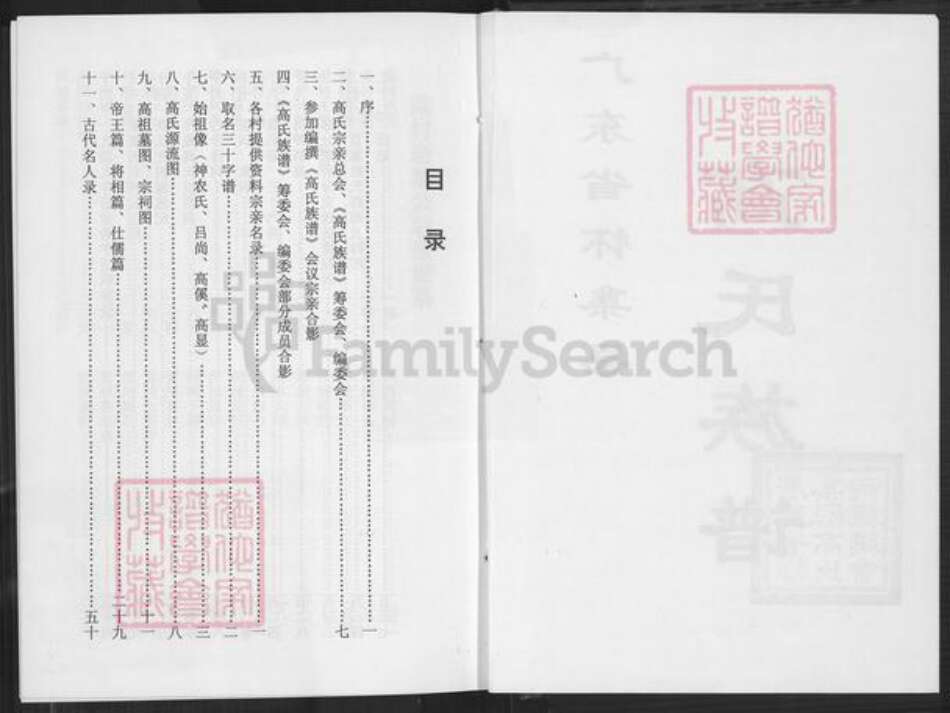 目录
一、序……一
二、高氏宗亲总会、《高氏族谱》筹委会、编委会……七
三、参加编撰《高氏族谱》会议宗亲合影
四、《高氏族谱》筹委会、编委会部分成员合影
五、各村提供资料宗亲名录……一
六、取名三十字谱……二
七、始祖像（神农氏、吕尚、高傒、高显）……三
八、高氏源流图……八
九、高祖墓图、宗祠图……十一
十、帝王篇、将相篇、仕儒篇……二十九
十一、古代名人录……五十
猶他家
譜學會
收藏
猶他家
譜學會
收藏
广东省怀集
氏族谱
FamilySearch